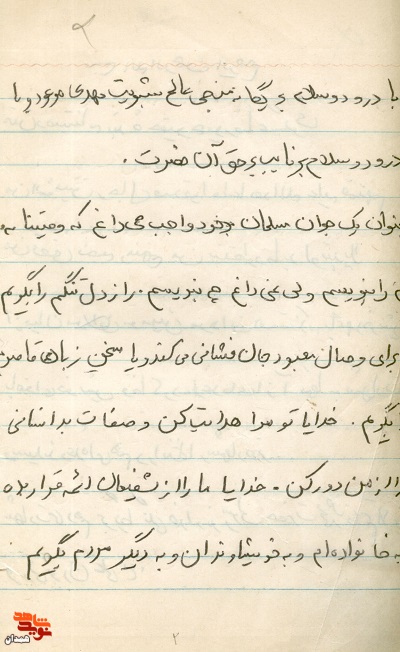 ۲
با درود و سلام به یگانه منجی عالم بشریت مهدی موعود و با
درود و سلام بر نایب بر حق آن حضرت .
عنوان یک جوان مسلمان بر خود واجب می داغ که وصیتنامه
را بنویسم ولی نمی داغ چه بنویسم . راز دل تنگم را بگویم
برای وصال معبود جان فشانی می کند و یا سخن زبان قاصر
بگویم . خدایا تو مرا هدایت کن و صفات بد انسانی
را از من دور کن . خدایا ما را از شفیعان ائمه قرار بده
به خانواده ام و به خویشاوندان و به دیگر مردم بگویم
۲
شاهد
نوید
همدان